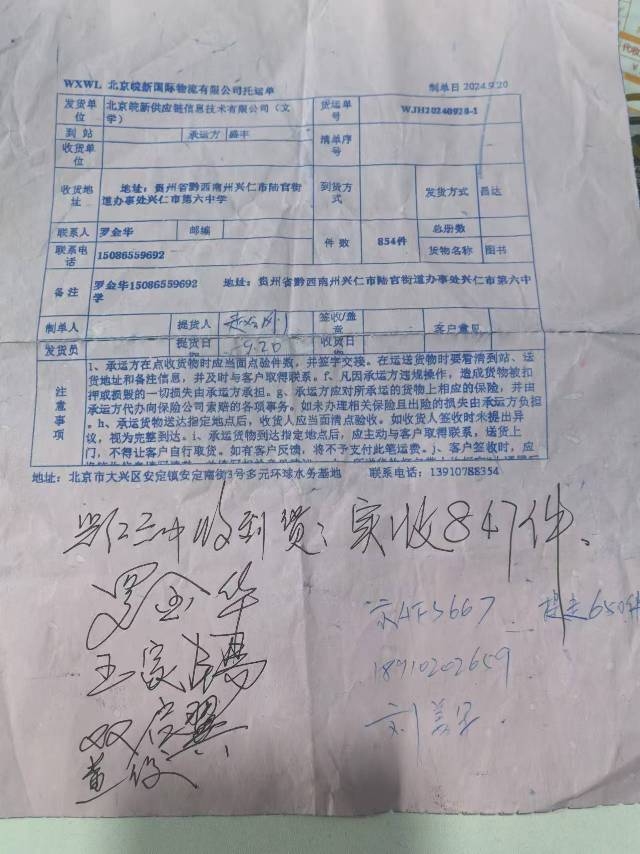 WXWL 北京皖新国际物流有限公司托运单 制单日 2024.9.20
发货单位 北京皖新供应链信息技术有限公司（文学） 货运单号 WJH20240928-1
到 站 承运方 盛丰 清单序号
收货单位
收货地址 地址：贵州省黔西南州兴仁市陆官街道办事处兴仁市第六中学 到货方式 发货方式 昌达
联系人 罗金华 邮编 件 数 854件 总册数
联系电话 15086559692 货物名称 图书
备注 罗金华15086559692 地址：贵州省黔西南州兴仁市陆官街道办事处兴仁市第六中学
制单人 提货人 签收/盖章 客户意见
发货员 提货日期 9.20 收货日期
注意事项
1、承运方在点收货物时应当面点验件数，并签字交接。在运送货物时要看清到站、送
货地址和备注信息，并及时与客户取得联系。f、凡因承运方违规操作，造成货物被扣
押或损毁的一切损失由承运方承担。g、承运方应对所承运的货物上相应的保险，并由
承运方代办向保险公司索赔的各项事务。如未办理相关保险且出险的损失由承运方负担
。h、承运货物送达指定地点后，收货人应当面清点验收。如收货人签收时未提出异
议，视为完整到达。i、承运货物到达指定地点后，应主动与客户取得联系，送货上
门，不得让客户自行取货。如有客户反馈，将不予支付此笔运费。j、客户签收时，应
地址：北京市大兴区安定镇安定南街3号多元环球水务基地 联系电话：13910788354
收到货：实收847件、
罗金华
京AF3667 提走650件
18910202659
刘